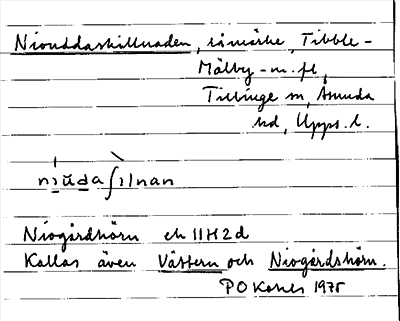 Niouddaskillnaden, råmärke, Tibble-
Mälby-m.fl,
Tillinge sn, Åsunda
hd, Upps.l.
nɩŭdaʃɩlnan
Niogårdhörn ek 11H2d
Kallas även Vättern och Niogårdshörn.
PO 1975